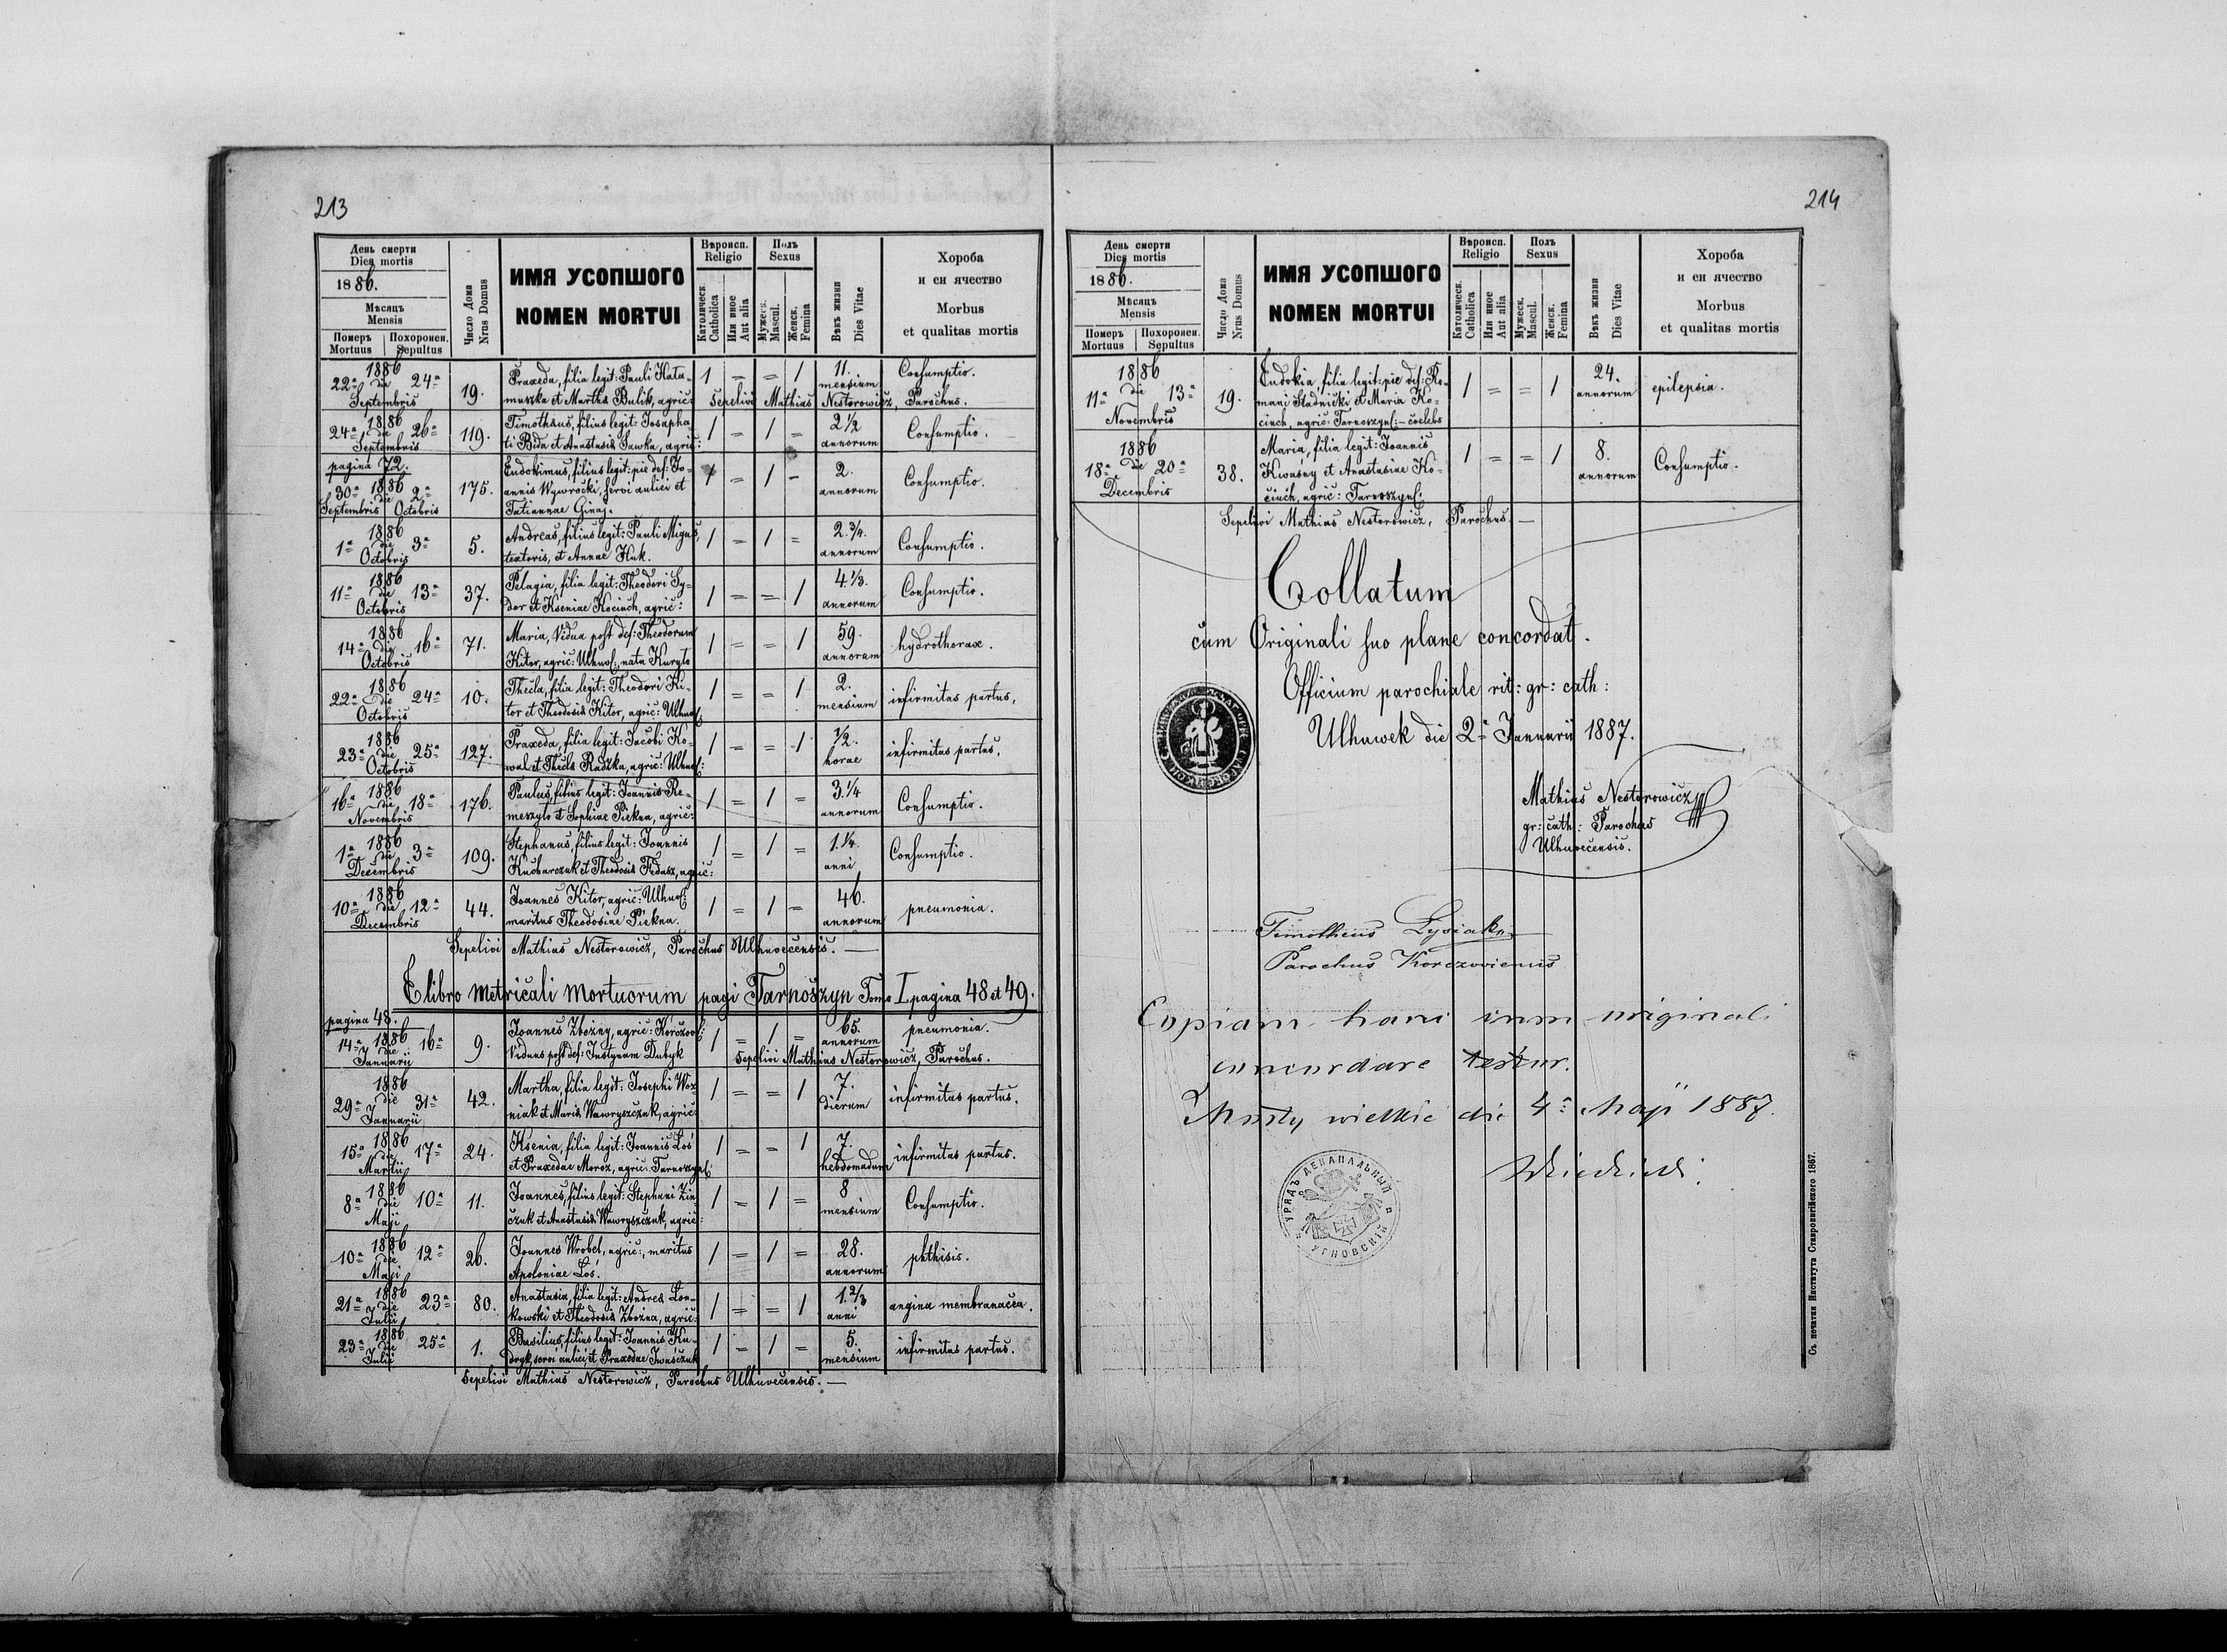 213
День смерти
Dies mortis
1886.
Мѣсяць
Mensis
Померъ Mortuus
Похоронен. Sepultus
Число Дома
Nrus Domus
ИМЯ УСОПШОГО
NOMEN MORTUI
Вѣроисп.
Religio
Католическ.
Catholica
Или иное
Aut alia
Полъ
Sexus
Мужеск.
Mascul.
Женск.
Femina
Вѣкъ жизни
Dies Vitae
Хороба
и еи ячество
Morbus
et qualitas mortis
1886
22ª die 24ª Septembris 19. Praxeda, filia legit: Pauli Hata-
muszka et Martha Bulik, agric: 1 = = 1 11. mensium Consumptio.
Sepelivi Mathias Nestorowicz, Parochus.
1886
24ª die 26ª Septembris 119. Timotheus, filius legit: Josapha
ti Bida et Anastasia Sawka, agric: 1 = 1 = 2½ annorum Consumptio.
pagina 72.
1886
30ª die 2ª Septembris Octobris 175. Eudokimus, filius legit: pie def: Jo-
annis Wywrocki, servi aulici et
Tatiannae Ginaj. 1 = 1 - 2. annorum Consumptio.
1886
1ª die 3ª Octobris 5. Andreas, filius legit: Pauli Migus,
textoris, et Annae Huk. 1 = 1 = 2¾. annorum Consumptio.
1886
11ª die 13ª Octobris 37. Pelagia, filia legit: Theodori Sy-
dor et Kseniae Kociuch, agric: 1 = = 1 4⅓. annorum Consumptio.
1886
14ª die 16ª Octobris 71. Maria, Vidua post def: Theodorum
Kitor, agric: Ulhuof:, nata Kuryło 1 = = 1 59. annorum hydrothorax.
1886
22ª die 24ª Octobris 10. Thecla, filia legit: Theodori Ki-
tor et Theodosia Kitor, agric: Ulhuof: 1 = = 1 2. mensium infirmitas partus.
1886
23ª die 25ª Octobris 127. Praxeda, filia legit: Jacobi Ko-
wal et Thecla Radzka, agric: Ulhuof: 1 = = 1 ½. horae infirmitas partus.
1886
16ª die 18ª Novembris 176. Paulus, filius legit: Joannis Re-
meszyło et Sophiae Piekna, agric: 1 = 1 = 3¼ annorum Consumptio.
1886
1ª die 3ª Decembris 109. Stephanus, filius legit: Joannis
Kucharczuk et Theodosia Fedasz, agric: 1 = 1 = 1¼. anni Consumptio.
1886
10ª die 12ª Decembris 44. Joannes Kitor, agric: Ulhuof:
maritus Theodosiae Piekna. 1 = 1 = 46. annorum pneumonia.
Sepelivi Mathias Nestorowicz, Parochus Ulhuvecensis. —
E libro metricali mortuorum pagi Tarnoszyn Tomo I pagina 48 et 49.
pagina 48.
1886
14ª die 16ª Januarii 9. Joannes Zbożny, agric: Korczow:
Viduus post def: Justynam Dubyk 1 = 1 = 65. annorum pneumonia.
Sepelivi Mathias Nestorowicz, Parochus.
1886
29ª die 31ª Januarii 42. Martha, filia legit: Josephi Woz-
niak et Maria Wawryszczuk, agric: 1 = = 1 7. dierum infirmitas partus.
1886
15ª die 17ª Martii 24. Ksenia, filia legit: Joannis Łoś
et Praxedae Moroz, agric: Tarnoszynf: 1 = = 1 7. hebdomadum infirmitas partus.
1886
8ª die 10ª Maji 11. Joannes, filius legit: Stephani Zin
czuk et Anastasia Wawryszczuk, agric: 1 = 1 = 8 mensium Consumptio.
1886
10ª die 12ª Maji 26. Joannes Wrobel, agric:, maritus
Apoloniae Łoś. 1 = 1 = 28. annorum phthisis.
1886
21ª die 23ª Julii 80. Anastasia, filia legit: Andrea Lon-
kowski et Theodosia Zbożna, agric: 1 = = 1 1⅔ anni angina membranacea.
1886
23ª die 25ª Julii 1. Basilius, filius legit: Joannis Ku-
dryk, servi aulici, et Praxedae Iwaśczuk 1 = 1 = 5. mensium infirmitas partus.
Sepelivi Mathias Nestorowicz, Parochus Ulhuvecensis. —
214
День смерти
Dies mortis
1886.
Мѣсяць
Mensis
Померъ Mortuus
Похоронен. Sepultus
Число Дома
Nrus Domus
ИМЯ УСОПШОГО
NOMEN MORTUI
Вѣроисп.
Religio
Католическ.
Catholica
Или иное
Aut alia
Полъ
Sexus
Мужеск.
Mascul.
Женск.
Femina
Вѣкъ жизни
Dies Vitae
Хороба
и еи ячество
Morbus
et qualitas mortis
1886
11ª die 13ª Novembris 19. Eudokia, filia legit: pie def: Ro-
mani Stadnicki et Maria Ko-
ciuch, agric: Tarnoszynf: – coelebs 1 = = 1 24. annorum epilepsia.
1886
18ª die 20ª Decembris 38. Maria, filia legit: Joannis
Kwasny et Anastasiae Ko-
ciuch, agric: Tarnoszynf: 1 = = 1 8. annorum Consumptio.
Sepelivi Mathias Nestorowicz, Parochus. —
Collatum
cum Originali suo plane concordat.
Officium parochiale rit: gr: cath:
Ulhuwek die 2ª Januarii 1887.
Mathias Nestorowicz
gr: cath: Parochus
Ulhuvecensis.
Timotheus Łysiak
Parochus Korczoviensis
Copiam hanc cum originali
concordare testor.
Mosty wielkie die 4ª Maji 1887.
УРЯДЪ ДЕКАНАЛЬНЫЙ
УГНОВСКІЙ
Съ печатни Института Ставропигійского 1867.